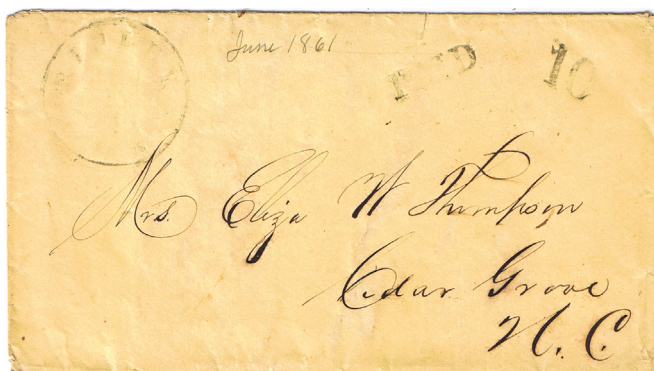 June 1861
PAID 10
Mrs. Eliza W Thompson
Cedar Grove
N. C.